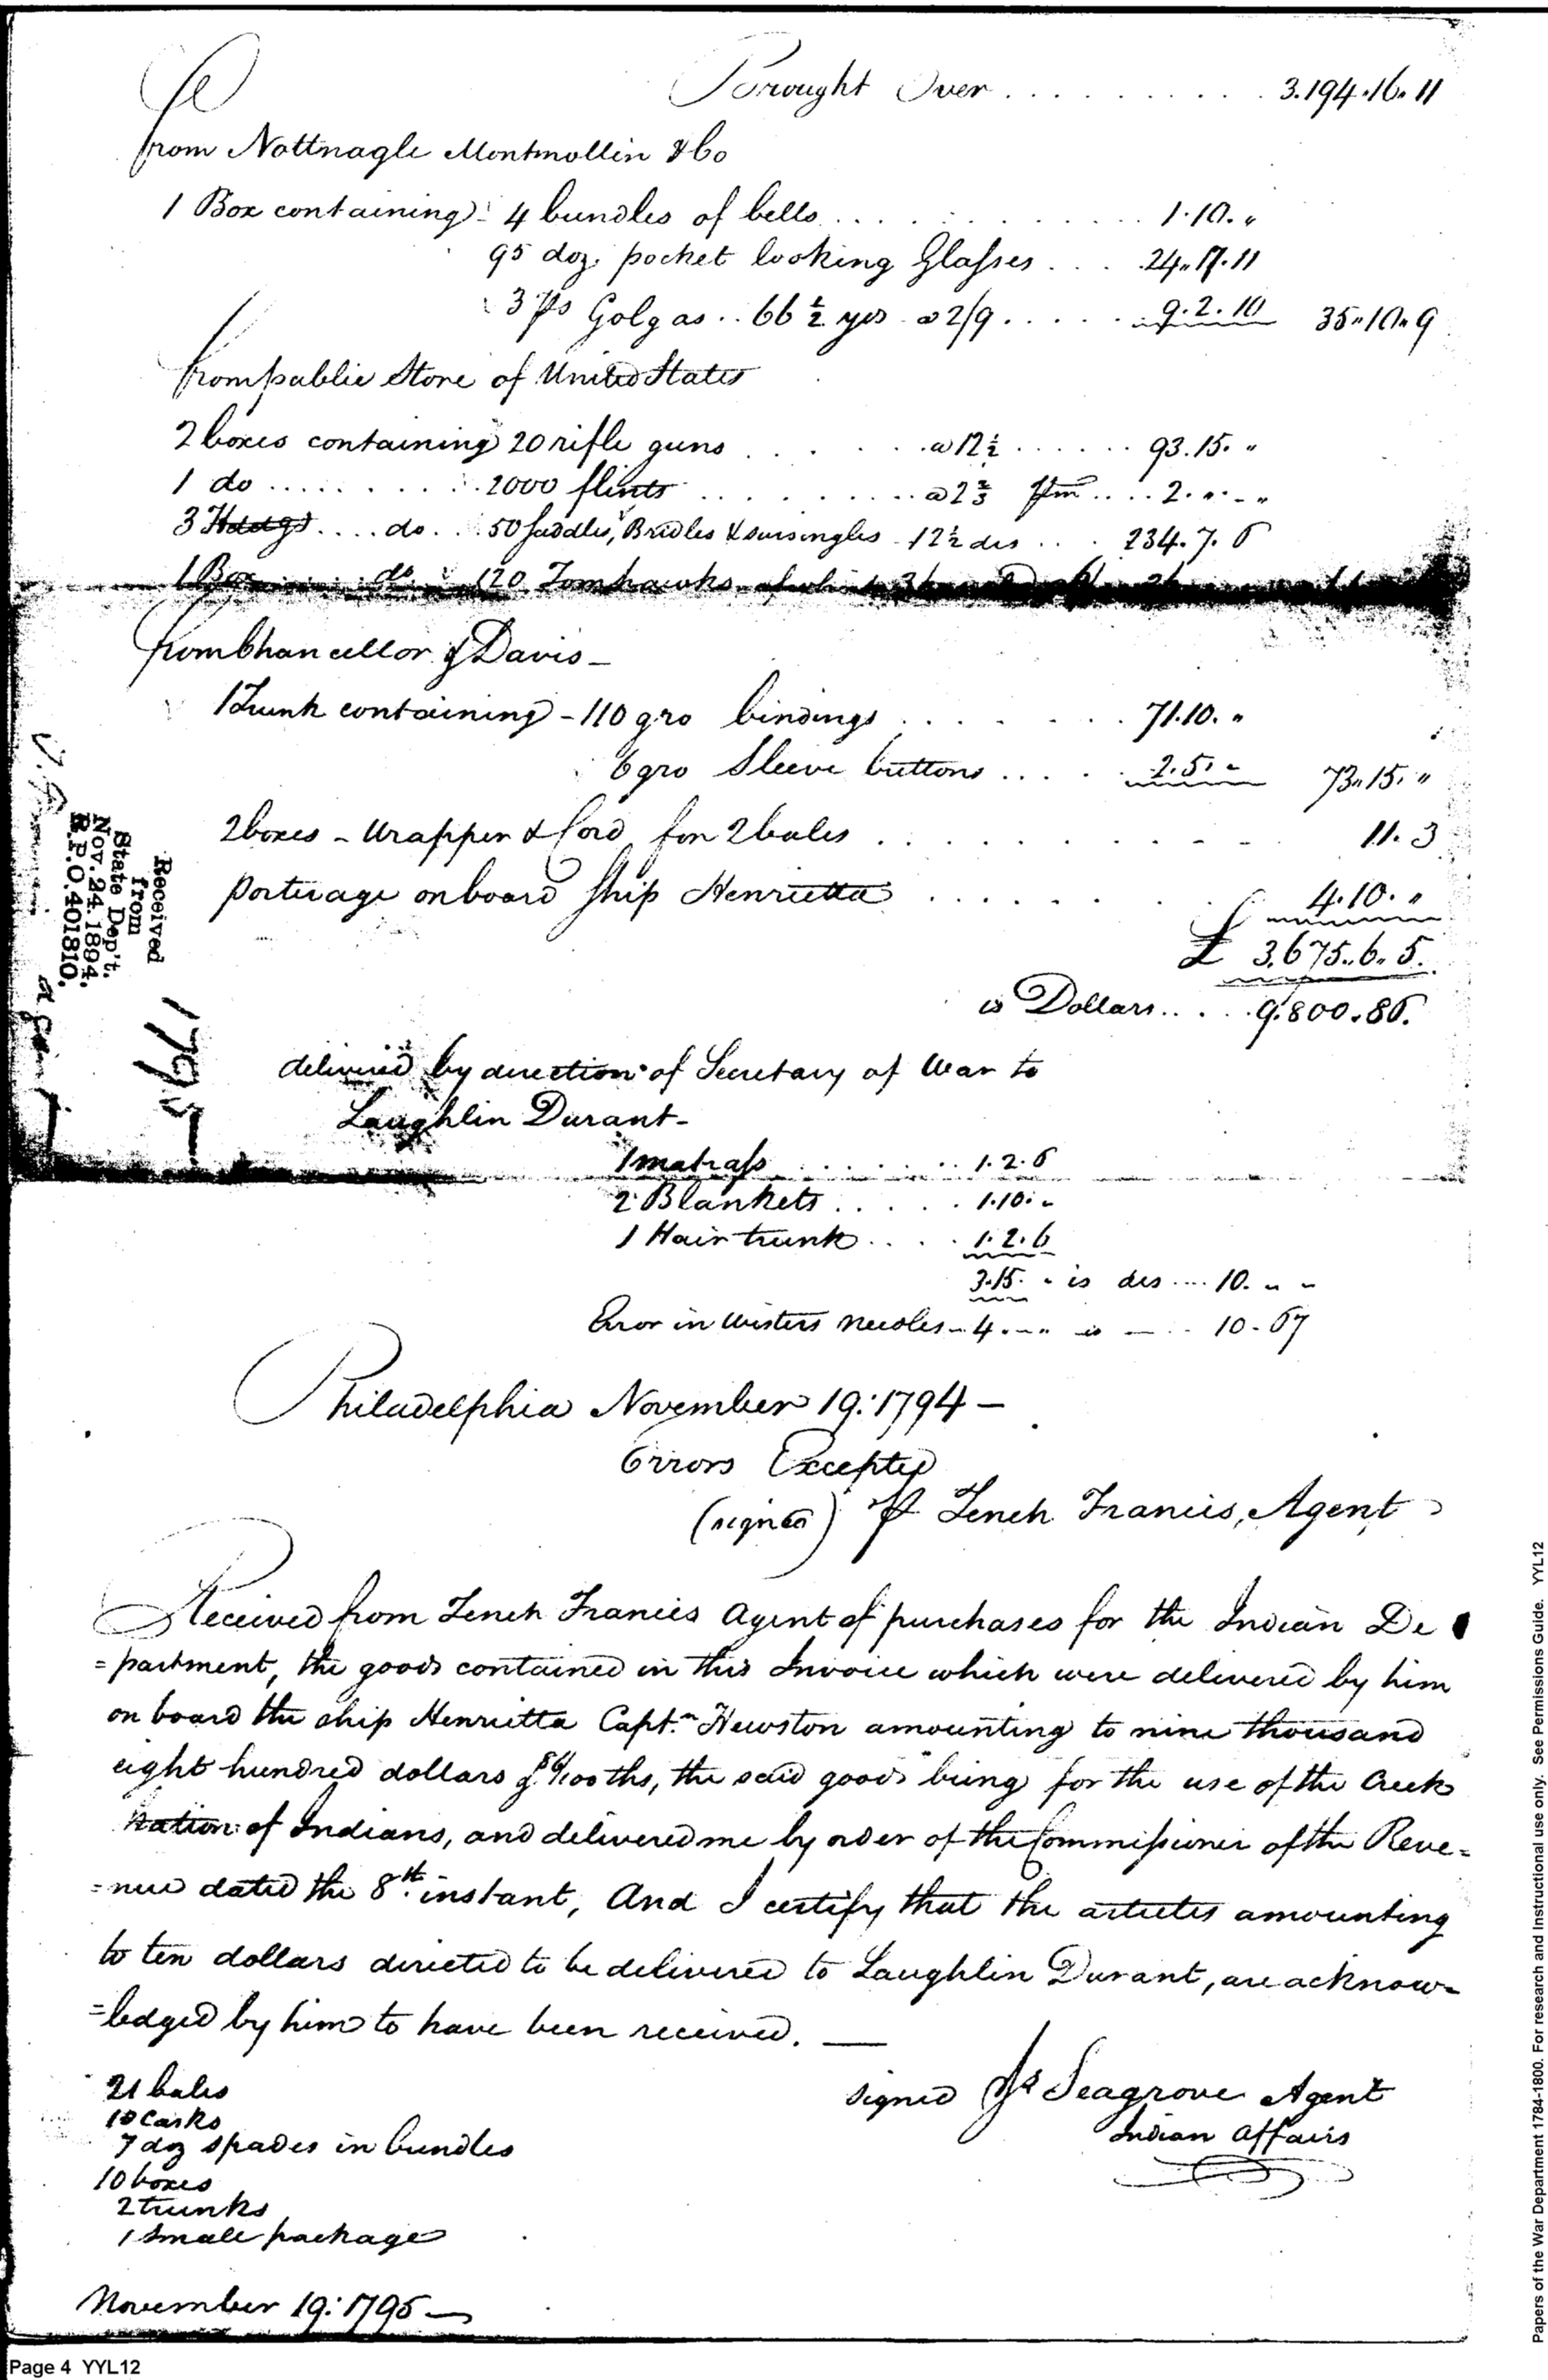 Brought Over . . . . . . . . . . 3.194.16.11
from Nottnagle Montmollin & Co
1 Box containing 4 bundles of bells . . . . . . 1.10. "
95 doz. pocket looking Glasses . . . 24.17.11
3 ps Golgas . . 66 1/2 yds a 2/9 . . . . . 9.2.10 35.10.9
from public Store of United States
2 boxes containing 20 rifle guns . . . . . . a 12 1/2 . . . . . . 93.15. "
1 do . . . . . . 2000 flints . . . . . . a 2 2/3 pm . . . . 2. " . "
3 Hhdgs . . . . do . . 50 saddles, Bridles & sursingles 12 1/2 drs . . . 234.7.6
1 Box do 120 Tomhawks of which
from Chancellor & Davis -
1 Trunk containing - 110 gro bindings . . . . . . 71.10. "
6 gro Sleeve buttons . . . . . 2.5. " 73.15. "
2 boxes - Wrapper & Cord for 2 bales . . . . . . . . . 11.3
porterage on board ship Henrietta . . . . . . . 4.10. "
£ 3.675.6.5.
is Dollars . . . . . 9.800.86.
delivered by direction of Secretary of War to
Laughlin Durant -
1 matrass . . . . . . 1.2.6
2 Blankets . . . . . 1.10. "
1 Hair trunk . . . . 1.2.6
3.15. " is drs .... 10. " "
Error in Wisters needles - 4. " . " is — . . 10.67
Philadelphia November 19: 1794 —
Errors Excepted
(signed) Tench Francis, Agent
Received from Tench Francis Agent of purchases for the Indian De
=partment, the goods contained in this Invoice which were delivered by him
on board the ship Henrietta Capt.n Hewston amounting to nine thousand
eight hundred dollars & 86/100ths, the said goods being for the use of the Creek
Nation of Indians, and delivered me by order of the Commissioner of the Reve=
=nue dated the 8th. instant, And I certify that the articles amounting
to ten dollars directed to be delivered to Laughlin Durant, are acknow=
=ledged by him to have been received. —
signed Js Seagrove Agent
Indian Affairs
21 bales
10 Casks
7 doz spades in bundles
10 boxes
2 trunks
1 Small package
November 19: 1795 —
Received
from
State Dep't.
Nov. 24. 1894.
R.P.O. 401810.
1795
Papers of the War Department 1784-1800. For research and Instructional use only. See Permissions Guide. YYL12
Page 4 YYL12